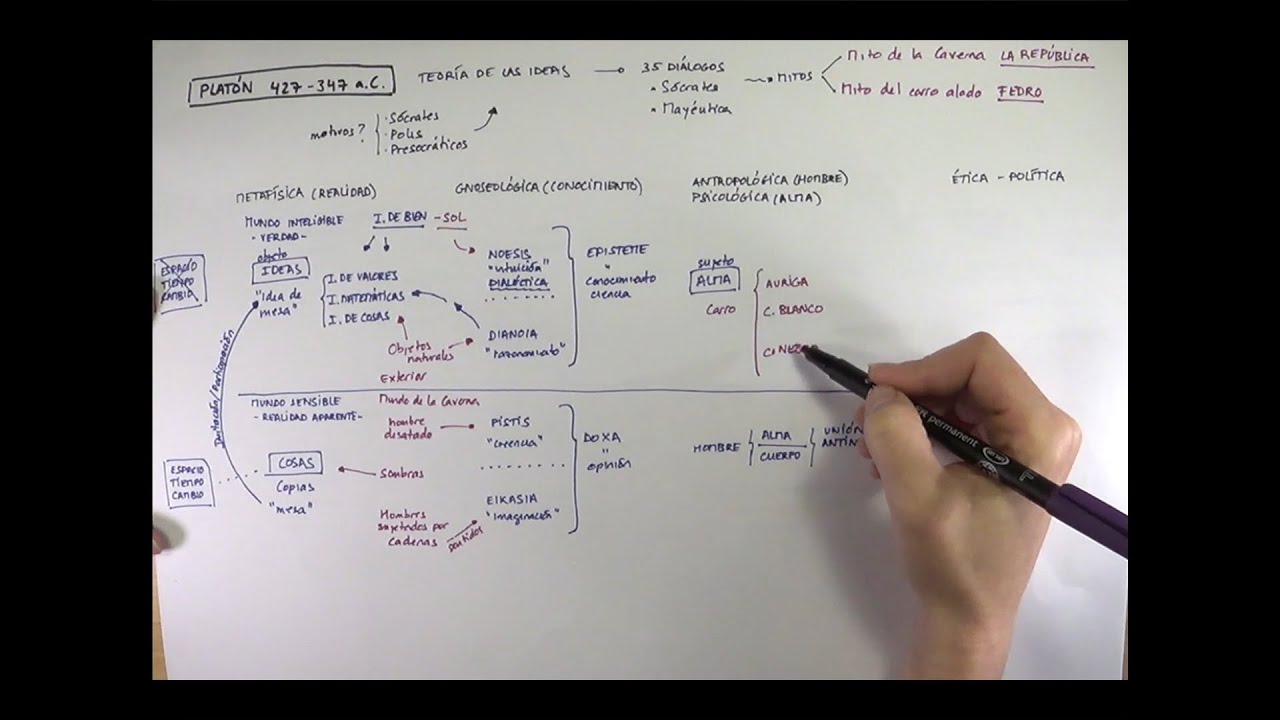 PLATÓN 427-347 a.C.
TEORÍA DE LAS IDEAS
35 DIÁLOGOS
• Sócrates
• Mayéutica
MITOS
Mito de la Caverna LA REPÚBLICA
Mito del carro alado FEDRO
motivos?
• Sócrates
• Polis
• Presocráticos
METAFÍSICA (REALIDAD)
GNOSEOLÓGICA (CONOCIMIENTO)
ANTROPOLÓGICA (HOMBRE)
PSICOLÓGICA (ALMA)
ÉTICA - POLÍTICA
MUNDO INTELIGIBLE
- VERDAD -
objeto
IDEAS
"idea de
mesa"
ESPACIO
TIEMPO
CAMBIO
I. DE BIEN - SOL
I. DE VALORES
I. MATEMÁTICAS
I. DE COSAS
Objetos
naturales
Exterior
NOESIS
"intuición"
DIALÉCTICA
DIANOIA
"razonamiento"
EPISTEME
"
conocimiento
ciencia
sujeto
ALMA
carro
AURIGA
C. BLANCO
Imitación/Participación
MUNDO SENSIBLE
- REALIDAD APARENTE -
COSAS
Copias
"mesa"
ESPACIO
TIEMPO
CAMBIO
Mundo de la Caverna
hombre
desatado
Sombras
Hombres
sujetados por
cadenas
sentidos
PÍSTIS
"creencia"
EIKASIA
"imaginación"
DOXA
"
opinión
HOMBRE
ALMA
CUERPO
UNIÓN
permanent